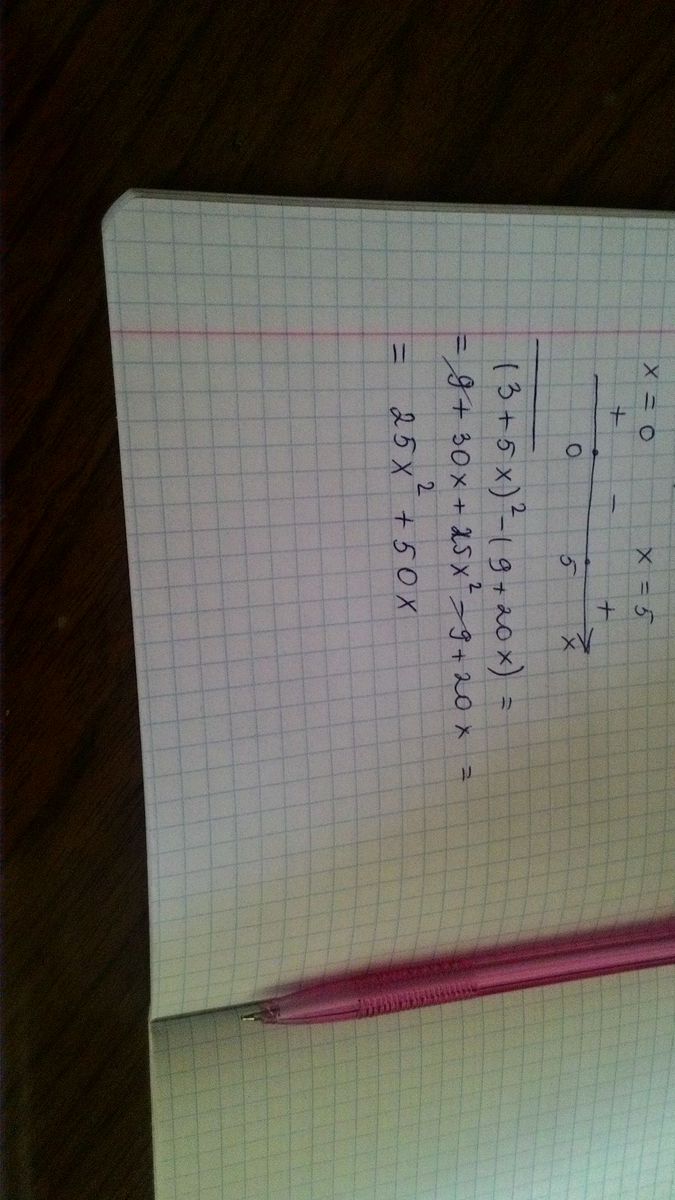 x = 0 x = 5
+ − +
0 5 x
(3 + 5x)² − (9 + 20x) =
= 9 + 30x + 25x² − 9 + 20x =
= 25x² + 50x